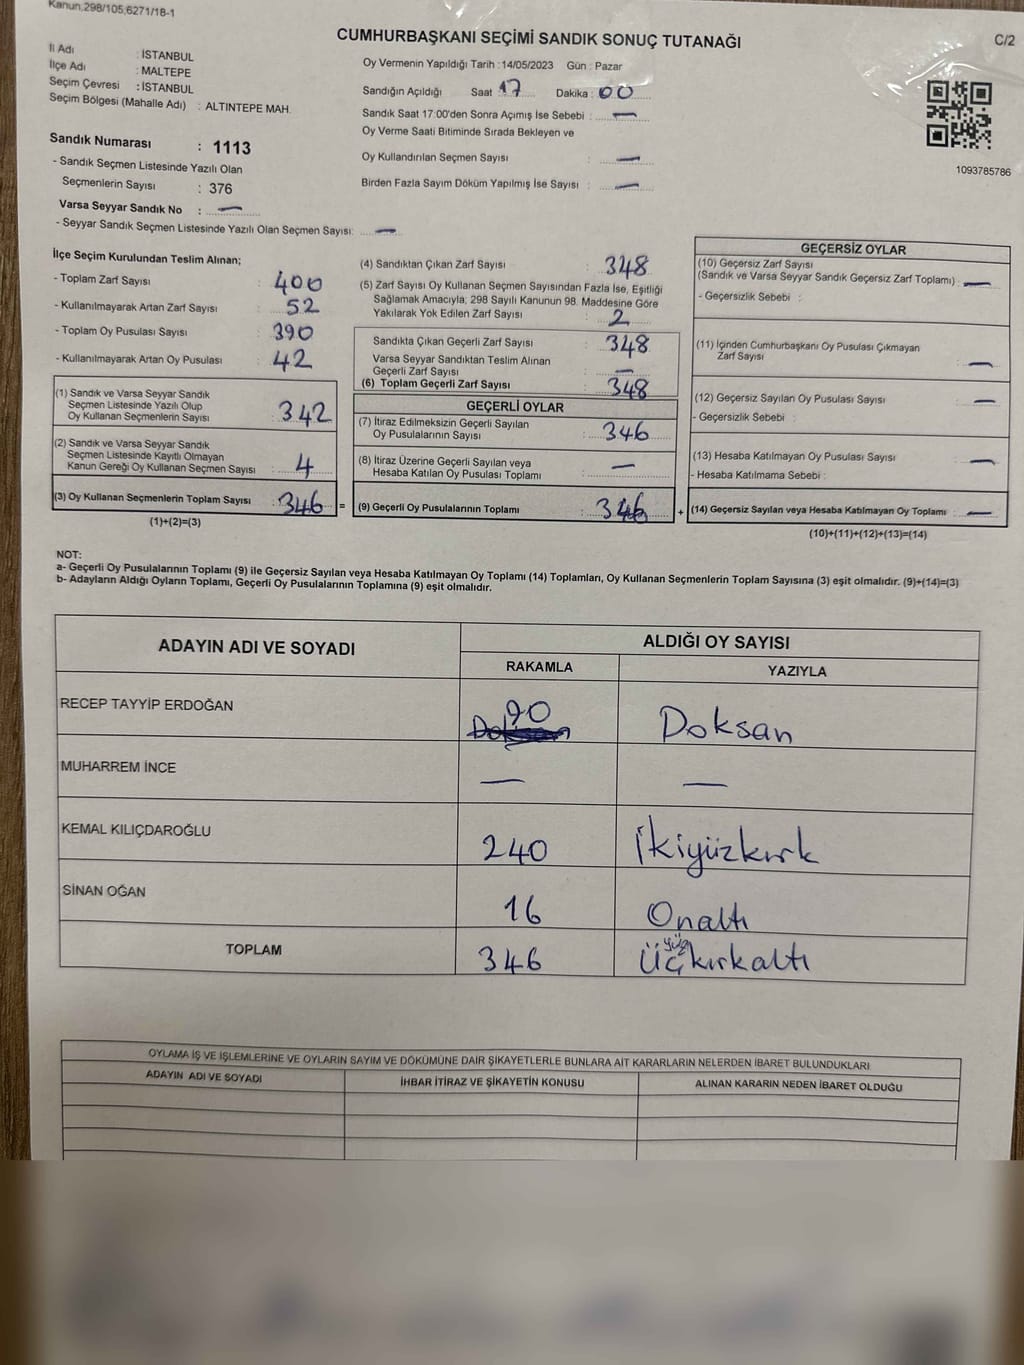 Kanun.298/105,6271/18-1
CUMHURBAŞKANI SEÇİMİ SANDIK SONUÇ TUTANAĞI
C/2
İl Adı : İSTANBUL
İlçe Adı : MALTEPE
Seçim Çevresi : İSTANBUL
Seçim Bölgesi (Mahalle Adı) : ALTINTEPE MAH.
Oy Vermenin Yapıldığı Tarih : 14/05/2023 Gün : Pazar
Sandığın Açıldığı Saat 17 Dakika : 00
Sandık Saat 17:00'den Sonra Açımış İse Sebebi : —
Oy Verme Saati Bitiminde Sırada Bekleyen ve
Oy Kullandırılan Seçmen Sayısı : —
Birden Fazla Sayım Döküm Yapılmış İse Sayısı : —
1093785786
Sandık Numarası : 1113
- Sandık Seçmen Listesinde Yazılı Olan
Seçmenlerin Sayısı : 376
Varsa Seyyar Sandık No : —
- Seyyar Sandık Seçmen Listesinde Yazılı Olan Seçmen Sayısı: —
İlçe Seçim Kurulundan Teslim Alınan;
- Toplam Zarf Sayısı : 400
- Kullanılmayarak Artan Zarf Sayısı : 52
- Toplam Oy Pusulası Sayısı : 390
- Kullanılmayarak Artan Oy Pusulası : 42
(1) Sandık ve Varsa Seyyar Sandık
Seçmen Listesinde Yazılı Olup
Oy Kullanan Seçmenlerin Sayısı : 342
(2) Sandık ve Varsa Seyyar Sandık
Seçmen Listesinde Kayıtlı Olmayan
Kanun Gereği Oy Kullanan Seçmen Sayısı : 4
(3) Oy Kullanan Seçmenlerin Toplam Sayısı : 346 =
(1)+(2)=(3)
(4) Sandıktan Çıkan Zarf Sayısı : 348
(5) Zarf Sayısı Oy Kullanan Seçmen Sayısından Fazla İse, Eşitliği
Sağlamak Amacıyla; 298 Sayılı Kanunun 98. Maddesine Göre
Yakılarak Yok Edilen Zarf Sayısı : 2
Sandıkta Çıkan Geçerli Zarf Sayısı : 348
Varsa Seyyar Sandıktan Teslim Alınan
Geçerli Zarf Sayısı : —
(6) Toplam Geçerli Zarf Sayısı : 348
GEÇERLİ OYLAR
(7) İtiraz Edilmeksizin Geçerli Sayılan
Oy Pusulalarının Sayısı : 346
(8) İtiraz Üzerine Geçerli Sayılan veya
Hesaba Katılan Oy Pusulası Toplamı : —
(9) Geçerli Oy Pusulalarının Toplamı : 346 +
GEÇERSİZ OYLAR
(10) Geçersiz Zarf Sayısı
(Sandık ve Varsa Seyyar Sandık Geçersiz Zarf Toplamı) : —
- Geçersizlik Sebebi :
(11) İçinden Cumhurbaşkanı Oy Pusulası Çıkmayan
Zarf Sayısı : —
(12) Geçersiz Sayılan Oy Pusulası Sayısı : —
- Geçersizlik Sebebi :
(13) Hesaba Katılmayan Oy Pusulası Sayısı : —
- Hesaba Katılmama Sebebi :
(14) Geçersiz Sayılan veya Hesaba Katılmayan Oy Toplamı : —
(10)+(11)+(12)+(13)=(14)
NOT:
a- Geçerli Oy Pusulalarının Toplamı (9) ile Geçersiz Sayılan veya Hesaba Katılmayan Oy Toplamı (14) Toplamları, Oy Kullanan Seçmenlerin Toplam Sayısına (3) eşit olmalıdır. (9)+(14)=(3)
b- Adayların Aldığı Oyların Toplamı, Geçerli Oy Pusulalarının Toplamına (9) eşit olmalıdır.
ADAYIN ADI VE SOYADI
ALDIĞI OY SAYISI
RAKAMLA YAZIYLA
RECEP TAYYİP ERDOĞAN 90 Doksan
MUHARREM İNCE — —
KEMAL KILIÇDAROĞLU 240 İkiyüzkırk
SİNAN OĞAN 16 Onaltı
TOPLAM 346 Üçyüzkırkaltı
OYLAMA İŞ VE İŞLEMLERİNE VE OYLARIN SAYIM VE DÖKÜMÜNE DAİR ŞİKAYETLERLE BUNLARA AİT KARARLARIN NELERDEN İBARET BULUNDUKLARI
ADAYIN ADI VE SOYADI İHBAR İTİRAZ VE ŞİKAYETİN KONUSU ALINAN KARARIN NEDEN İBARET OLDUĞU